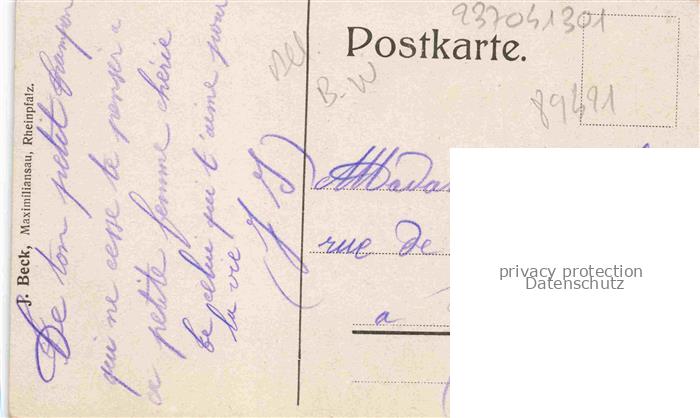 937041301
Postkarte.
All.
B-W
89491
J. Beck, Maximiliansau, Rheinpfalz.
De ton petit
qui ne cesse te penser a
a petite femme chérie
be celui qui t'aime pour
la vie
J J
Mada
rue de
a
privacy protection
Datenschutz